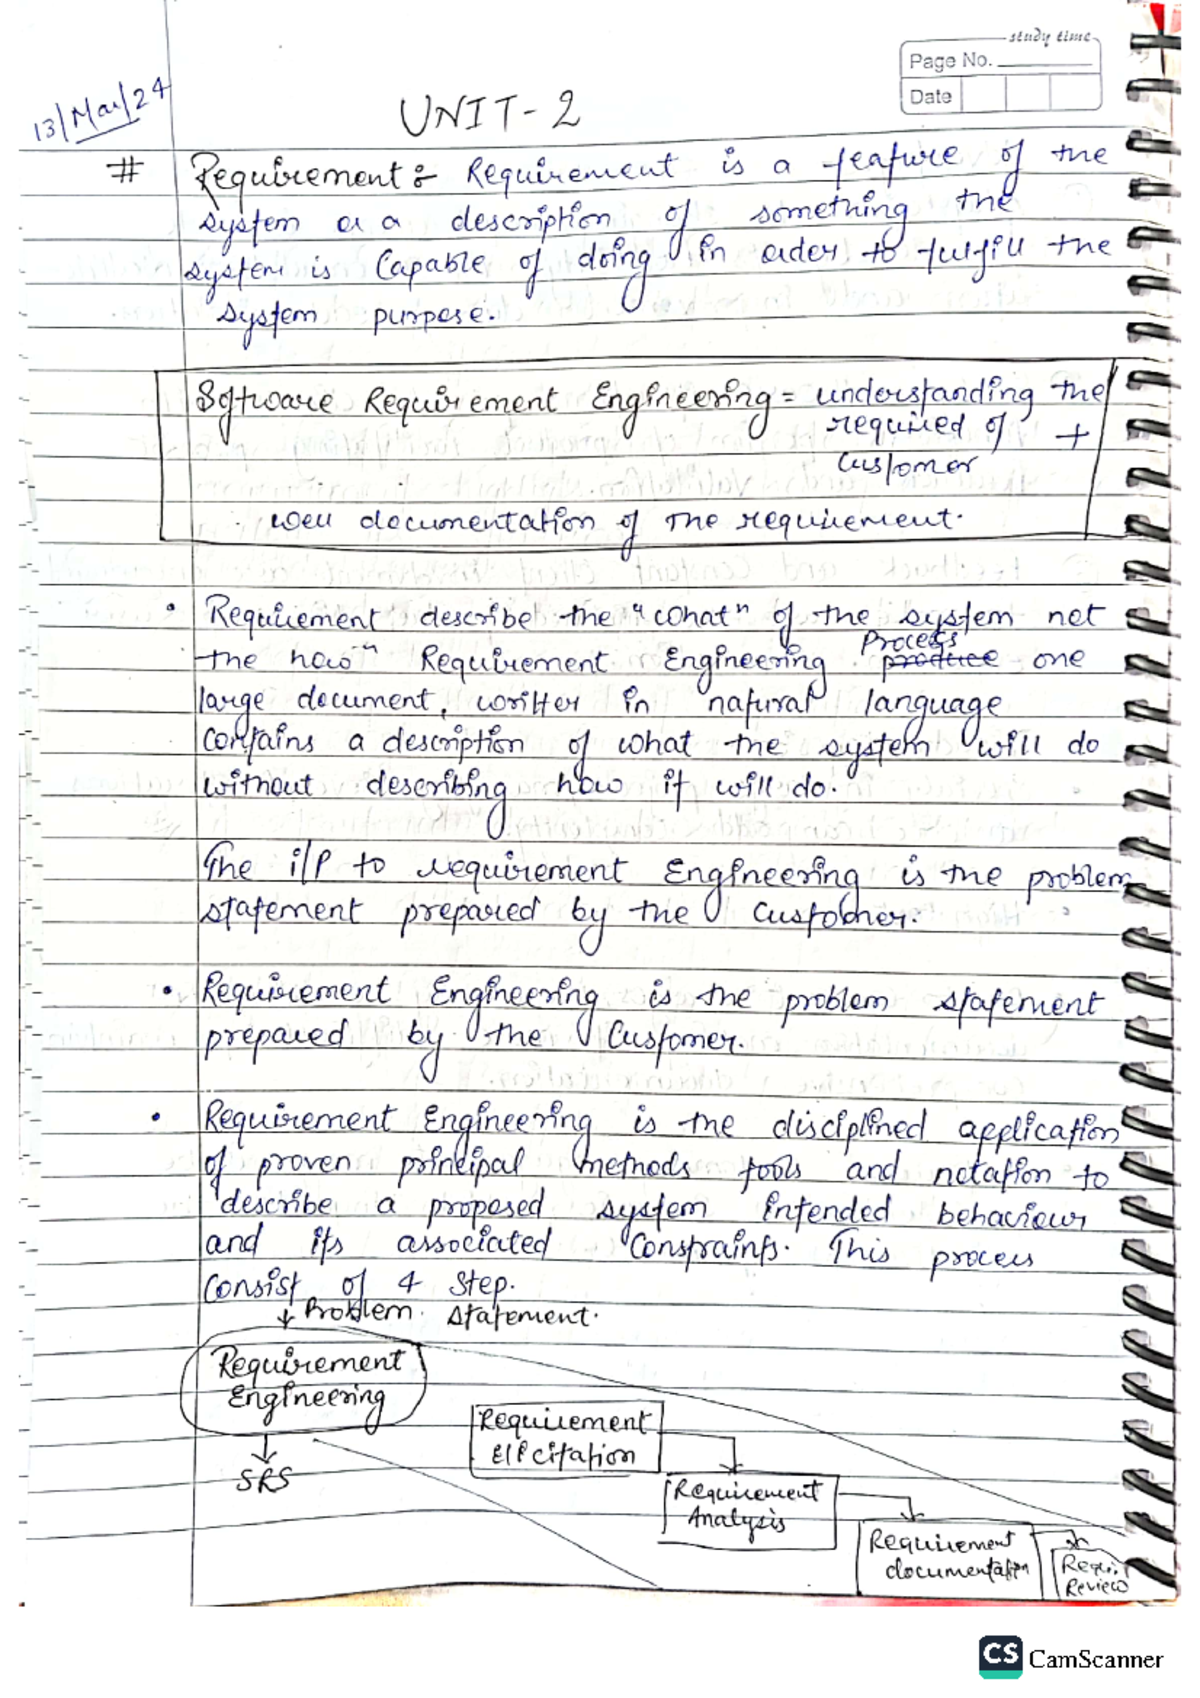 study time
Page No.
Date
13/Mar/24
UNIT-2
# Requirement : Requirement is a feature of the
system or a description of something the
system is Capable of doing in order to fulfill the
system purpose.
Software Requirement Engineering = understanding the
required of +
Customer
well documentation of the requirement.
• Requirement describe the "what" of the system not
the how" Requirement Engineering Process produce one
large document, written in natural language
contains a description of what the system will do
without describing how it will do.
The i/P to requirement Engineering is the problem
statement prepared by the Customer.
• Requirement Engineering is the problem statement
prepared by the Customer.
• Requirement Engineering is the disciplined application
of proven principal methods tools and notation to
describe a proposed system intended behaviour
and its associated Constraints. This process
Consist of 4 Step.
↓ Problem Statement.
Requirement
Engineering
↓
SRS
Requirement
Elicitation
Requirement
Analysis
Requirement
documentation
Requi
Review
CS CamScanner